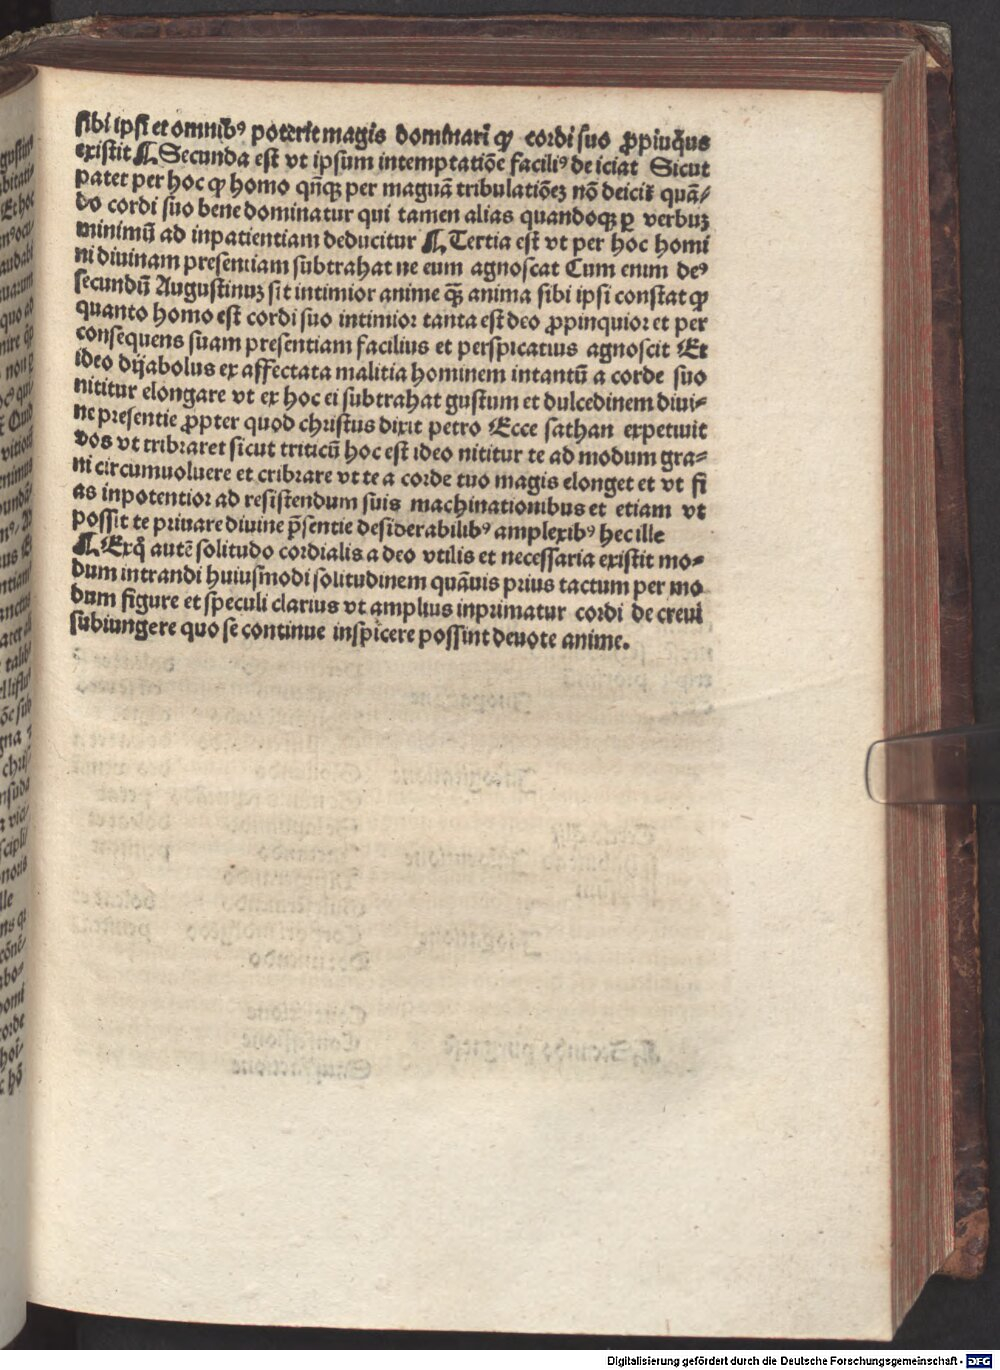 sibi ipsi et omnibꝰ poterit magis dominari ꝙ cordi suo ꝓpiuq̄us
existit ¶ Secunda est vt ipsum intemptatiōe faciliꝰ de iciat Sicut
patet per hoc ꝙ homo qn̄qꝫ per magnā tribulatiōeꝫ nō deicit quā⸗
do cordi suo bene dominatur qui tamen alias quandoqꝫ ꝑ verbuꝫ
minimū ad inpatientiam deducitur ¶ Tertia est vt per hoc homi
ni diuinam presentiam subtrahat ne eum agnoscat Cum enim deꝰ
secundū Augustinuꝫ sit intimior anime qꝫ̄ anima sibi ipsi constat ꝙ
quanto homo est cordi suo intimior tanta est deo ꝓpinquior et per
consequens suam presentiam facilius et perspicatius agnoscit Et
ideo dyabolus ex affectata malitia hominem intantū a corde suo
nititur elongare vt ex hoc ei subtrahat gustum et dulcedinem diui⸗
ne presentie ꝓpter quod christus dixit petro Ecce sathan expetiuit
vos vt tribraret sicut triticū hoc est ideo nititur te ad modum gra⸗
ni circumuoluere et cribrare vt te a corde tuo magis elonget et vt fi
as inpotentior ad resistendum suis machinationibus et etiam vt
possit te priuare diuine p̄sentie desiderabilibꝰ amplexibꝰ hec ille
¶ Exq̄ autē solitudo cordialis a deo vtilis et necessaria existit mo⸗
dum intrandi huiusmodi solitudinem quāuis prius tactum per mo
dum figure et speculi clarius vt amplius inprimatur cordi de creui
subiungere quo se continue inspicere possint deuote anime.
Digitalisierung gefördert durch die Deutsche Forschungsgemeinschaft - DFG